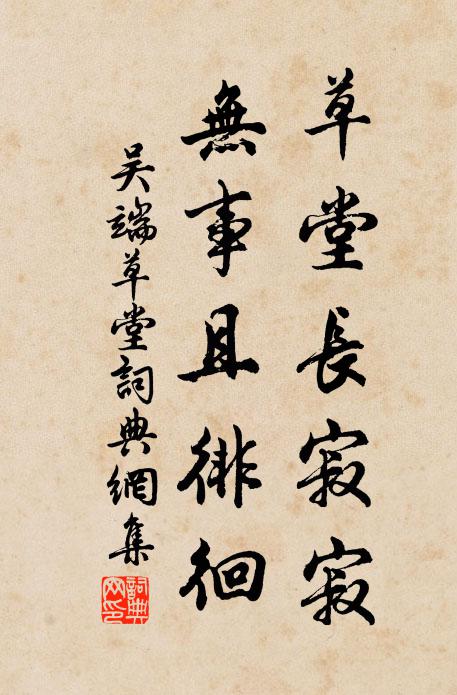 草堂長寂寂
無事且徘徊
吴端草堂詞典網集
詞典网印